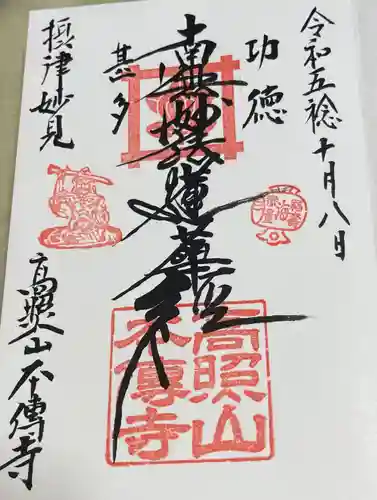 令和五稔十月八日
功徳
南無妙法蓮華経
甚多
摂津妙見
高照山本傳寺
高照山
本傳寺